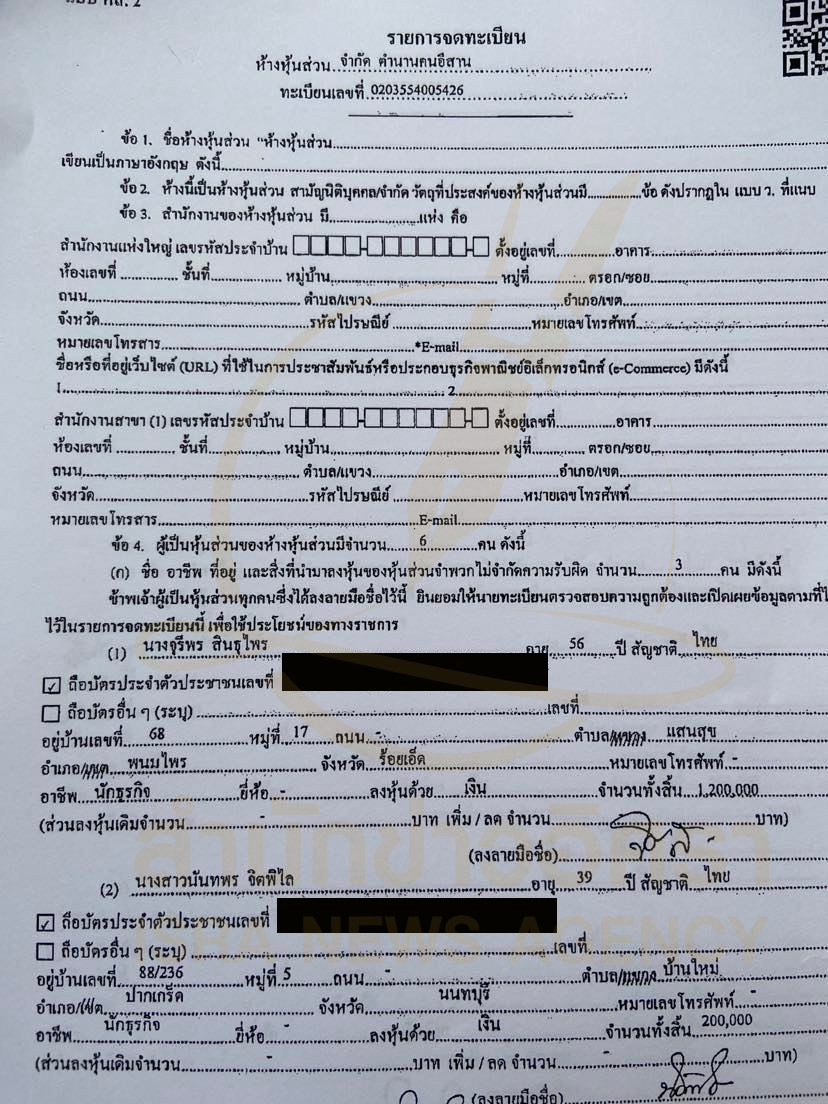 แบบ หส. 2
รายการจดทะเบียน
ห้างหุ้นส่วน จำกัด ตำนานคนอีสาน
ทะเบียนเลขที่ 0203554005426
ข้อ 1. ชื่อห้างหุ้นส่วน "ห้างหุ้นส่วน
เขียนเป็นภาษาอังกฤษ ดังนี้
ข้อ 2. ห้างนี้เป็นห้างหุ้นส่วน สามัญนิติบุคคล/จำกัด วัตถุที่ประสงค์ของห้างหุ้นส่วนมี ข้อ ดังปรากฏใน แบบ ว. ที่แนบ
ข้อ 3. สำนักงานของห้างหุ้นส่วน มี แห่ง คือ
สำนักงานแห่งใหญ่ เลขรหัสประจำบ้าน ตั้งอยู่เลขที่ อาคาร
ห้องเลขที่ ชั้นที่ หมู่บ้าน หมู่ที่ ตรอก/ซอย
ถนน ตำบล/แขวง อำเภอ/เขต
จังหวัด รหัสไปรษณีย์ หมายเลขโทรศัพท์
หมายเลขโทรสาร *E-mail
ชื่อหรือที่อยู่เว็บไซต์ (URL) ที่ใช้ในการประชาสัมพันธ์หรือประกอบธุรกิจพาณิชย์อิเล็กทรอนิกส์ (e-Commerce) มีดังนี้
1 2
สำนักงานสาขา (1) เลขรหัสประจำบ้าน ตั้งอยู่เลขที่ อาคาร
ห้องเลขที่ ชั้นที่ หมู่บ้าน หมู่ที่ ตรอก/ซอย
ถนน ตำบล/แขวง อำเภอ/เขต
จังหวัด รหัสไปรษณีย์ หมายเลขโทรศัพท์
หมายเลขโทรสาร E-mail
ข้อ 4. ผู้เป็นหุ้นส่วนของห้างหุ้นส่วนมีจำนวน 6 คน ดังนี้
(ก) ชื่อ อาชีพ ที่อยู่ และสิ่งที่นำมาลงหุ้นของหุ้นส่วนจำพวกไม่จำกัดความรับผิด จำนวน 3 คน มีดังนี้
ข้าพเจ้าผู้เป็นหุ้นส่วนทุกคนซึ่งได้ลงลายมือชื่อไว้นี้ ยินยอมให้นายทะเบียนตรวจสอบความถูกต้องและเปิดเผยข้อมูลตามที่
ไว้ในรายการจดทะเบียนนี้ เพื่อใช้ประโยชน์ของทางราชการ
(1) นางจุรีพร สินธุไพร อายุ 56 ปี สัญชาติ ไทย
ถือบัตรประจำตัวประชาชนเลขที่
ถือบัตรอื่น ๆ (ระบุ) เลขที่
อยู่บ้านเลขที่ 68 หมู่ที่ 17 ถนน - ตำบล/แขวง แสนสุข
อำเภอ/เขต พนมไพร จังหวัด ร้อยเอ็ด หมายเลขโทรศัพท์ -
อาชีพ นักธุรกิจ ยี่ห้อ - ลงหุ้นด้วย เงิน จำนวนทั้งสิ้น 1,200,000
(ส่วนลงหุ้นเดิมจำนวน - บาท เพิ่ม / ลด จำนวน บาท)
(ลงลายมือชื่อ)
(2) นางสาวนันทพร จิตพิไล อายุ 39 ปี สัญชาติ ไทย
ถือบัตรประจำตัวประชาชนเลขที่
ถือบัตรอื่น ๆ (ระบุ) เลขที่
อยู่บ้านเลขที่ 88/236 หมู่ที่ 5 ถนน - ตำบล/แขวง บ้านใหม่
อำเภอ/เขต ปากเกร็ด จังหวัด นนทบุรี หมายเลขโทรศัพท์ -
อาชีพ นักธุรกิจ ยี่ห้อ - ลงหุ้นด้วย เงิน จำนวนทั้งสิ้น 200,000
(ส่วนลงหุ้นเดิมจำนวน - บาท เพิ่ม / ลด จำนวน - บาท)
(ลงลายมือชื่อ)